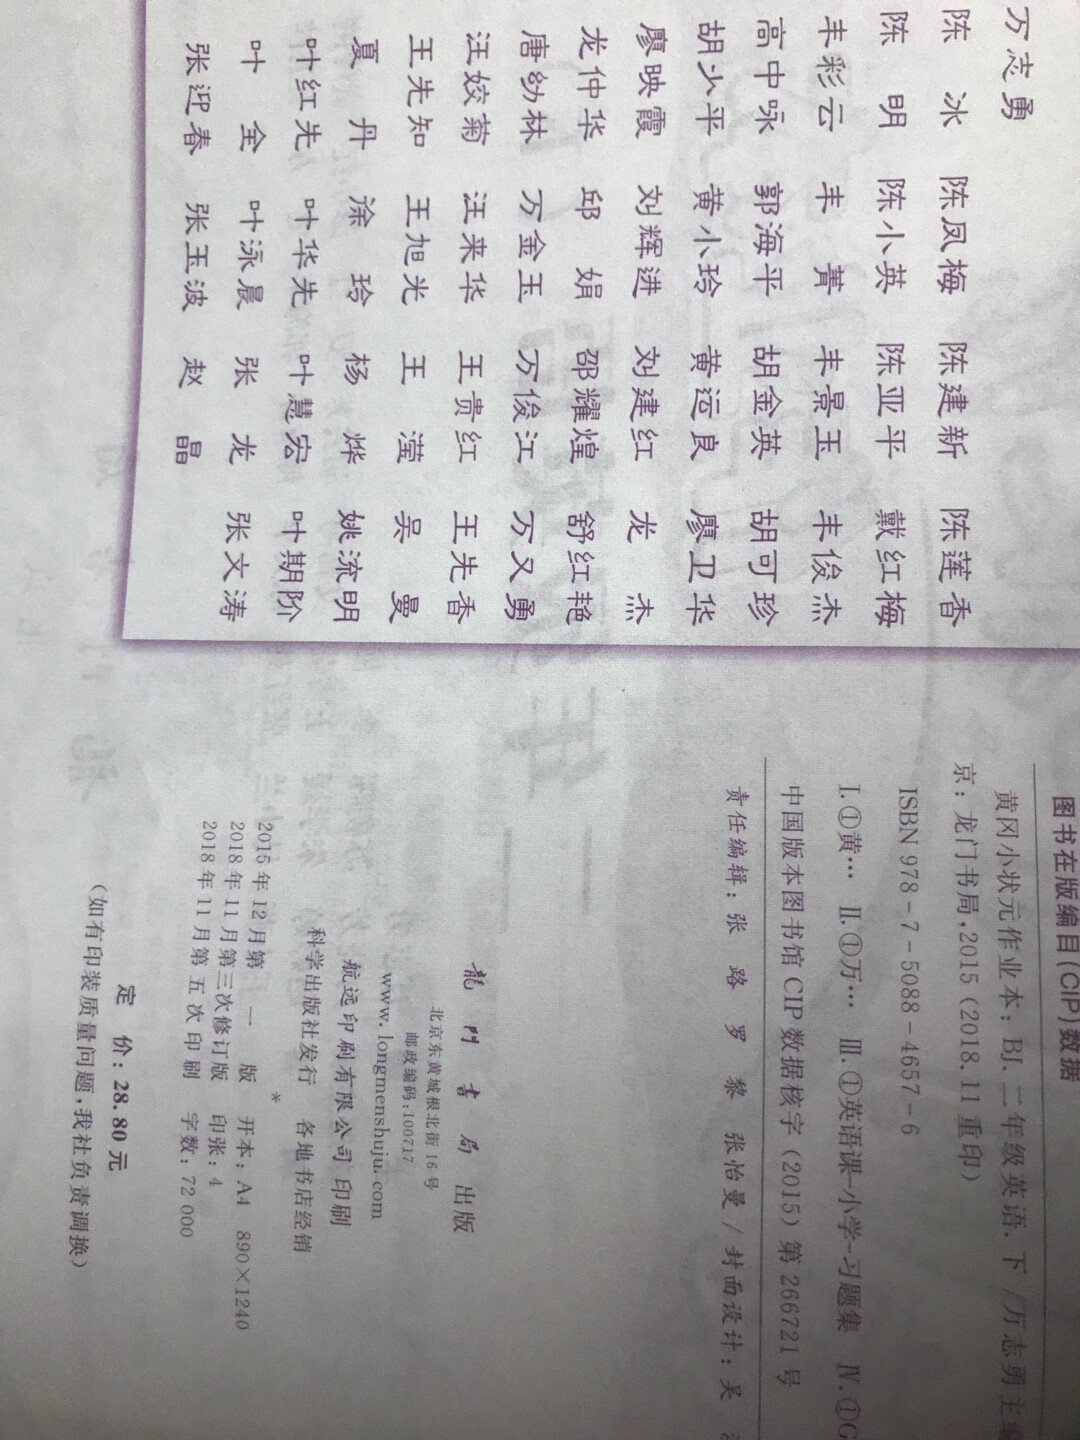 万志勇
陈 冰 陈凤梅 陈建新 陈莲香
陈 明 陈小英 陈亚平 戴红梅
丰彩云 丰 菁 丰景玉 丰俊杰
高中咏 郭海平 胡金英 胡可珍
胡少平 黄小玲 黄运良 廖卫华
廖映霞 刘辉进 刘建红 龙 杰
龙仲华 邱 娟 邵耀煌 舒红艳
唐幼林 万金玉 万俊江 万又勇
汪姣菊 汪来华 王贵红 王先香
王先知 王旭光 王 滢 吴 曼
夏 丹 涂 玲 杨 烨 姚流明
叶红先 叶华先 叶慧宏 叶期阶
叶 全 叶泳晨 张 龙 张文涛
张迎春 张玉波 赵 晶
图书在版编目(CIP)数据
黄冈小状元作业本:BJ.二年级英语.下/万志勇主编
京:龙门书局,2015(2018.11重印)
ISBN 978-7-5088-4657-6
Ⅰ.①黄… Ⅱ.①万… Ⅲ.①英语课-小学-习题集 Ⅳ.①G
中国版本图书馆CIP数据核字(2015)第266721号
责任编辑:张 路 罗 黎 张怡曼/封面设计:吴
龍門書局 出版
北京东黄城根北街16号
邮政编码:100717
www.longmenshuju.com
航远印刷有限公司 印刷
科学出版社发行 各地书店经销
*
2015年12月第 一 版 开本:A4 890×1240
2018年11月第三次修订版 印张:4
2018年11月第五次印刷 字数:72 000
定 价:28.80元
(如有印装质量问题,我社负责调换)